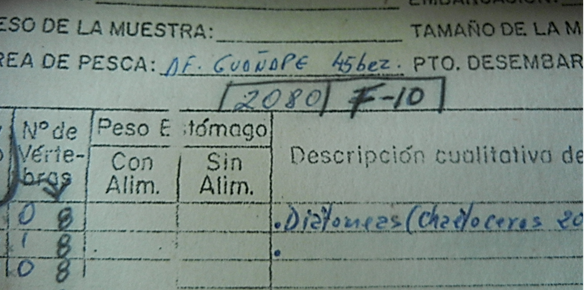 ESO DE LA MUESTRA: TAMAÑO DE LA M
REA DE PESCA: AF. GUAÑAPE 45bez. PTO. DESEMBAR
2080 F-10
Nº de Vérte- bras
Peso E tómago
Con Alim.
Sin Alim.
Descripción cualitativa de
0 8 .Diatomeas (Chaetoceros 20
1 8 .
0 8